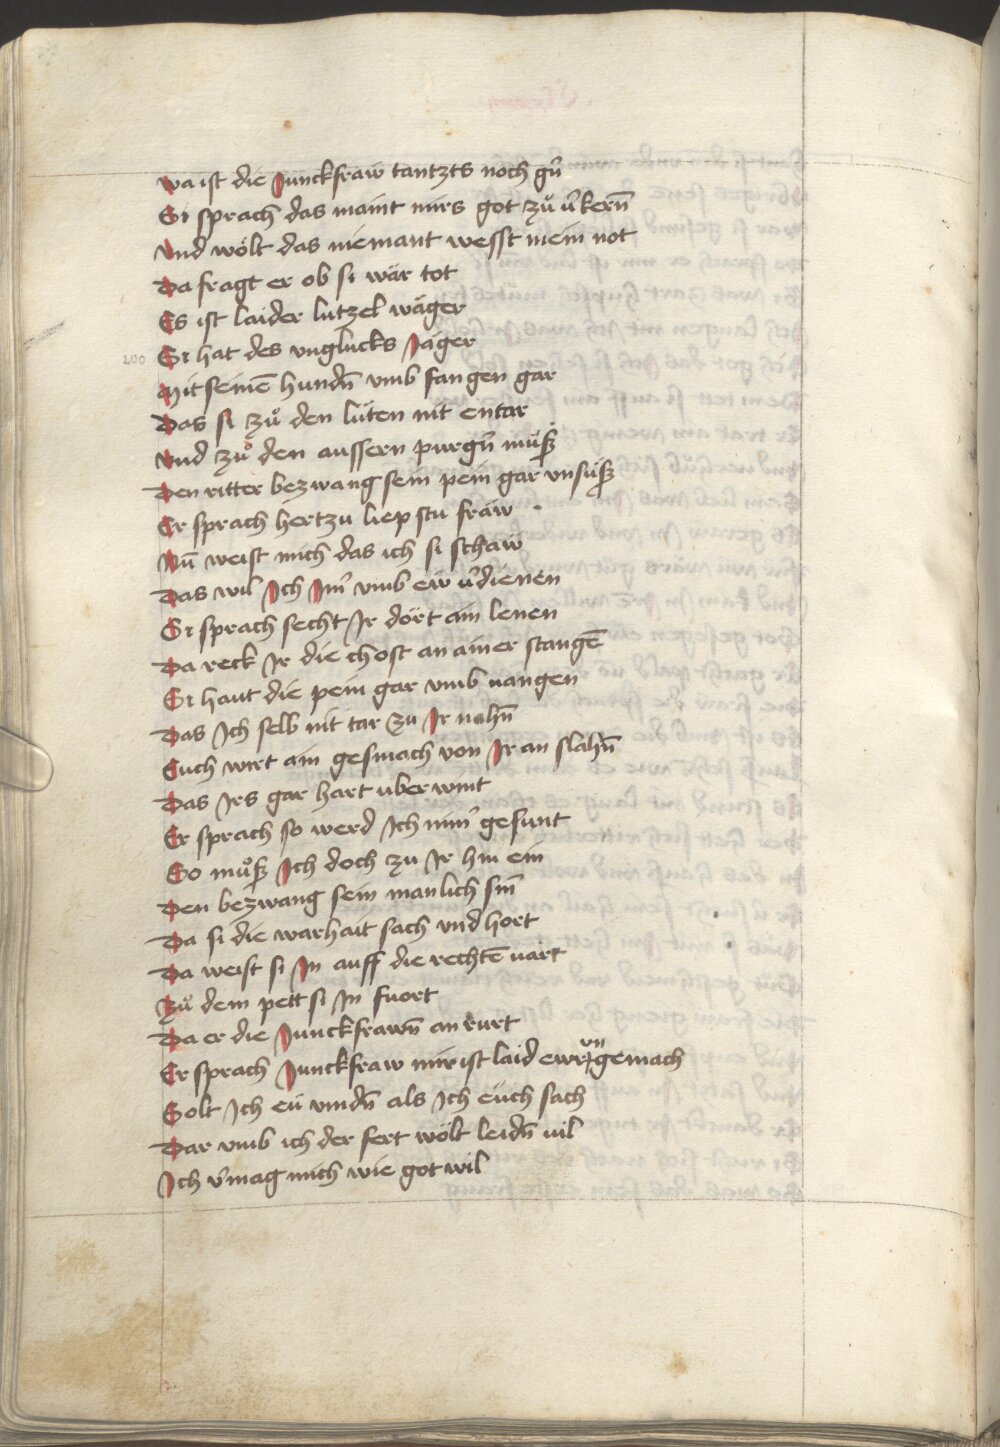 Wa ist die Junckfraw tantzts noch gn̄
Si sprach das maint mirs got zů v̄kern̄
Vnd wölt das niemant wesst mein not
Da fragt er ob si wär tot
Es ist laider lützel wäger
200 Si hat des vnglucks Jäger
Mit seinē hundn̄ vmb fangen gar
Das si zů den lüten nit entar
Vnd zů den aussern purgn̄ můsz
Den ritter bezwang sein pein gar vnsüsz
Er sprach hertzu liepstu fraw
Nū weist mich das ich si schaw
Das wil Ich Im̄ vmb ew v̄dienen
Si sprach secht Ir dört ain lenen
Da reck Ir die chost an ainer stangē
Si haut die pein gar vmb uangen
Das Ich selb nit tar zu Ir nahn̄
Euch wirt ain gesmach von Ir an slahn̄
Das Irs gar hart uberwint
Er sprach so werd Ich nim̄ gesunt
So můsz Ich doch zu Ir hin ein
Den bezwang sein manlich sin̄
Da si die warhait sach vnd hort
Da weist si In auff die rechtē uart
Zů dem pett si In fuort
Da er die Junckfrawn̄ an rurt
Er sprach Junckfraw mir ist laid ewr vngemach
Solt Ich eu vindn̄ als Ich euch sach
Dar vmb ich der fert wölt leidn̄ uil
Ich v̄mag mich wie got wil